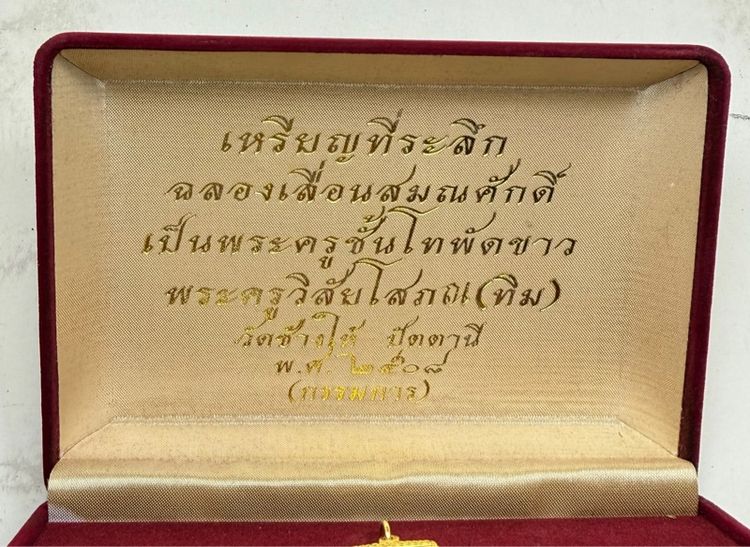 เหรียญที่ระลึก
ฉลองเลื่อนสมณศักดิ์
เป็นพระครูชั้นโทพัดขาว
พระครูวิสัยโสภณ(ทิม)
วัดช้างให้ ปัตตานี
พ.ศ. ๒๕๐๘
(กรรมการ)